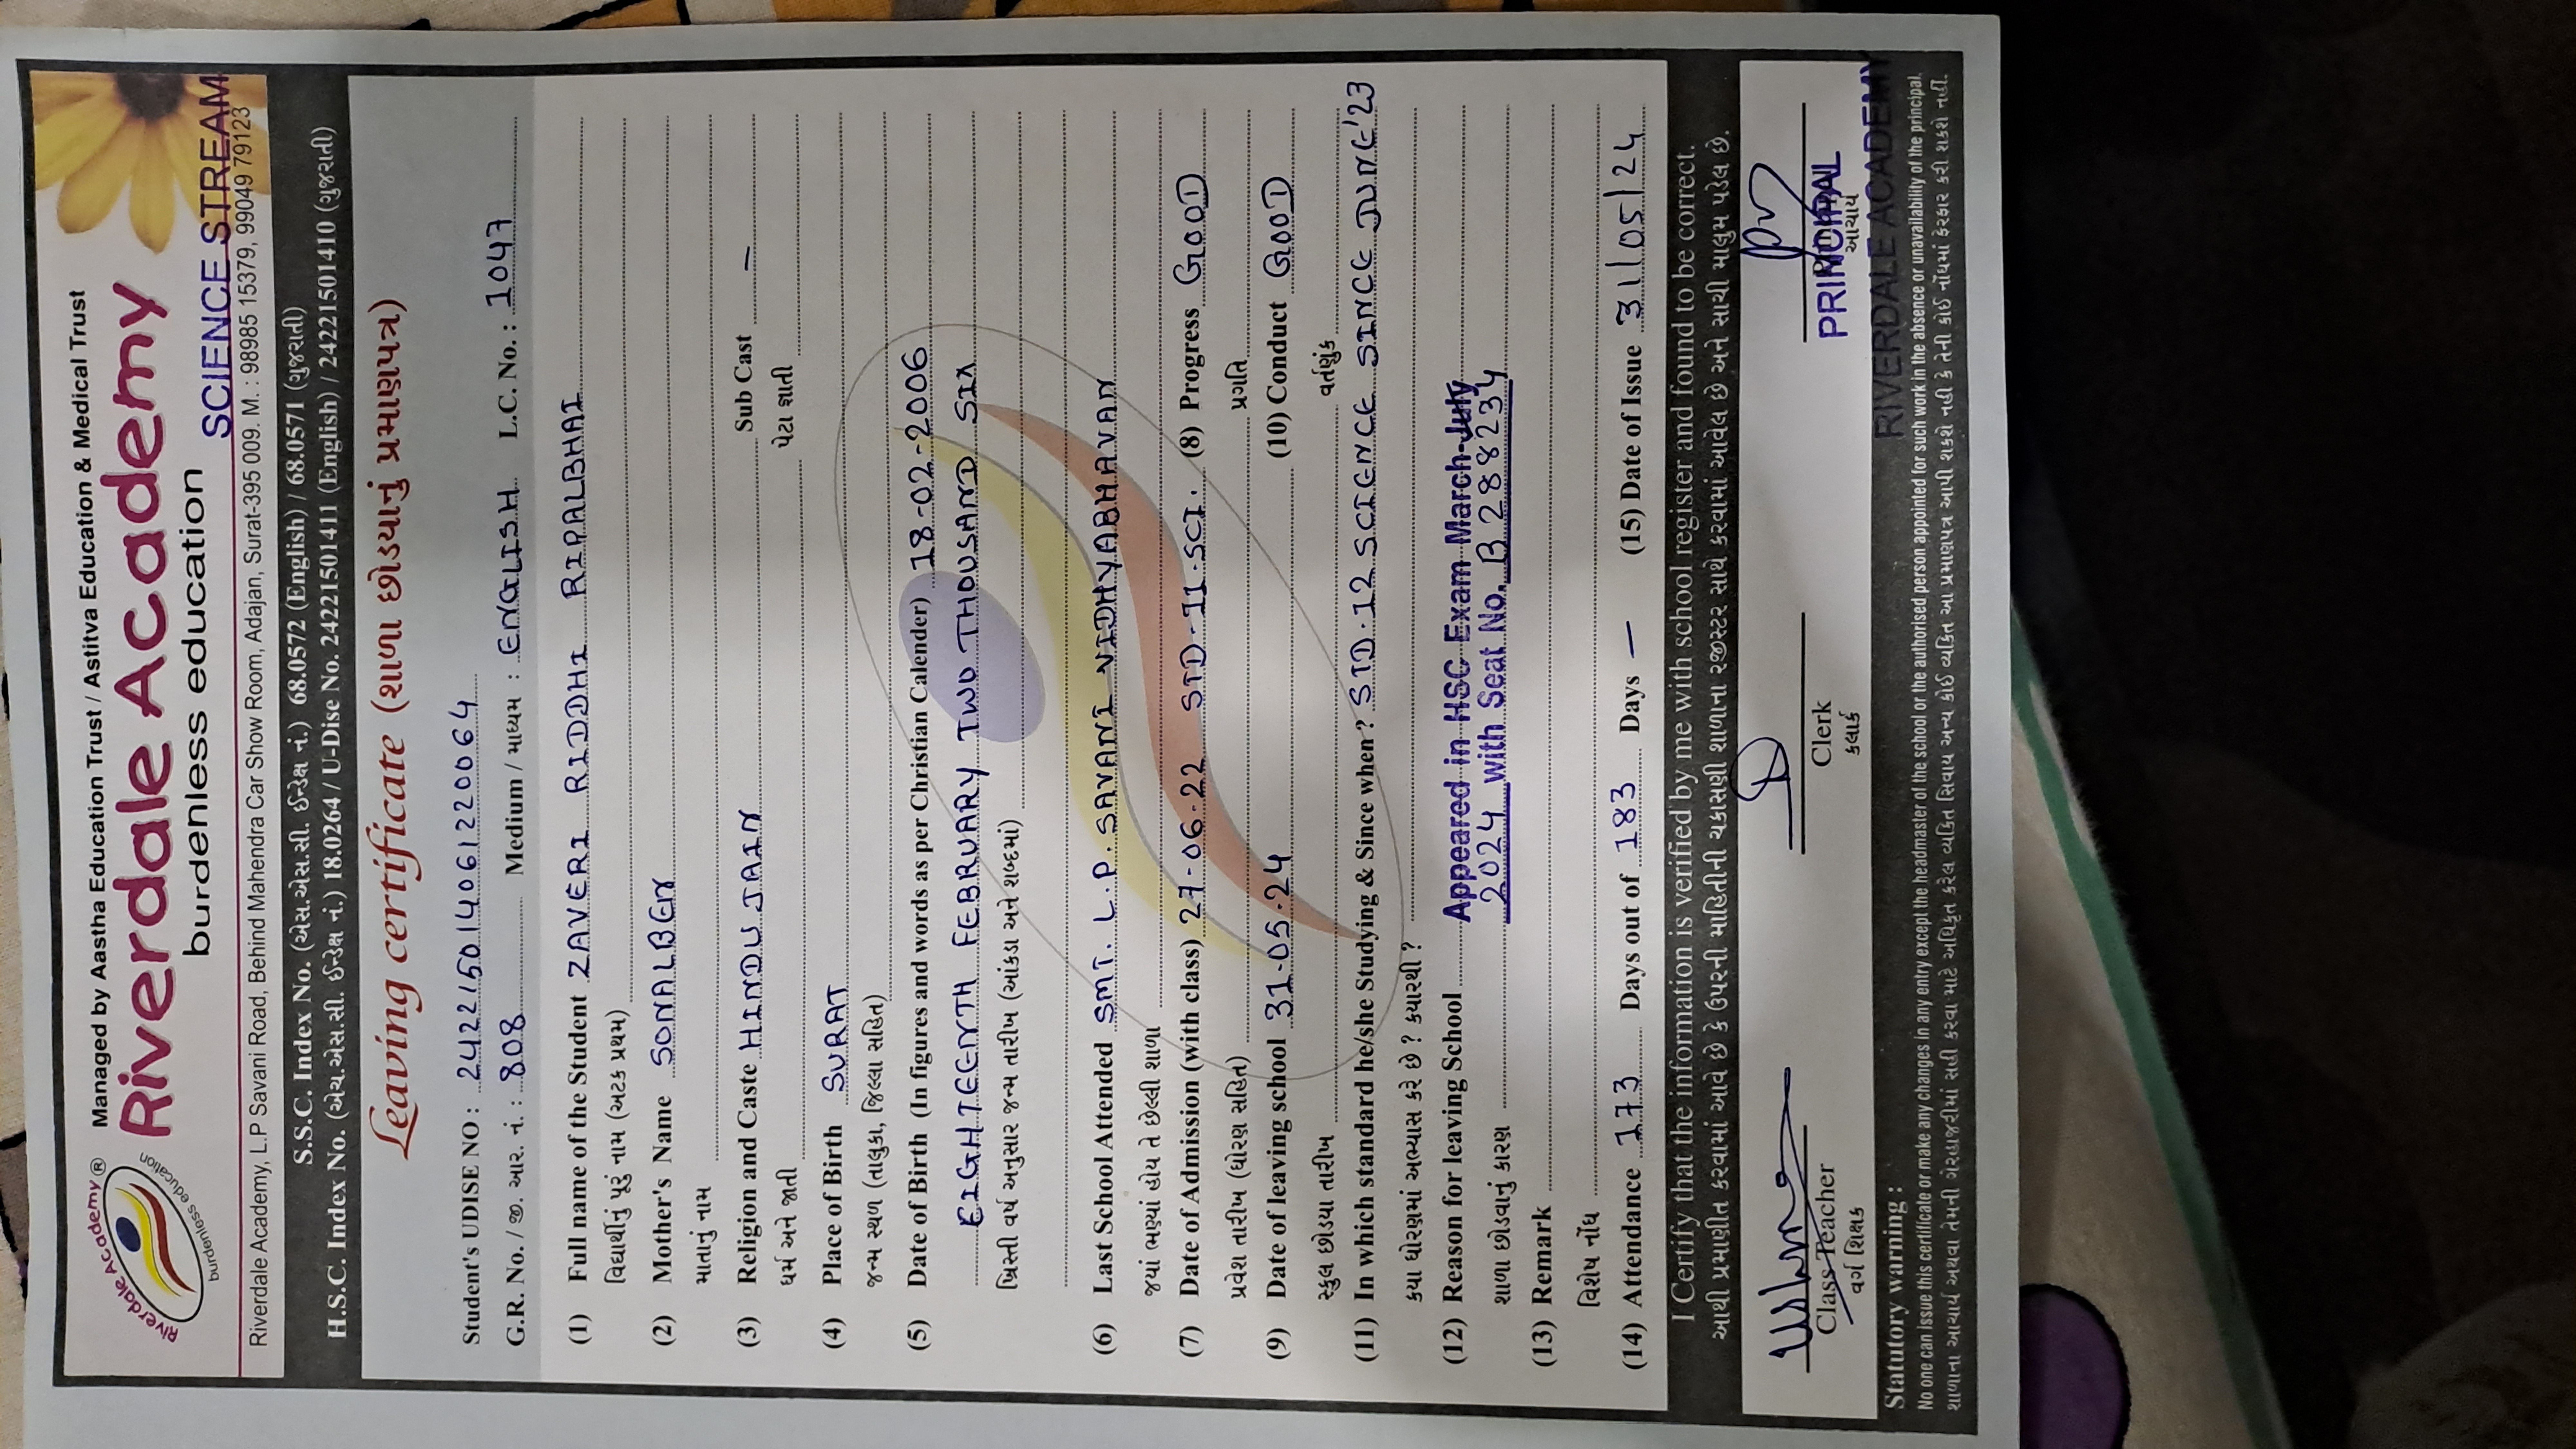 Managed by Aastha Education Trust / Astitva Education & Medical Trust
Riverdale Academy ®
burdenless education
Riverdale Academy
burdenless education
SCIENCE STREAM
Riverdale Academy, L.P Savani Road, Behind Mahendra Car Show Room, Adajan, Surat-395 009. M. : 98985 15379, 99049 79123
S.S.C. Index No. (એસ.એસ.સી. ઈન્ડેક્ષ નં.) 68.0572 (English) / 68.0571 (ગુજરાતી)
H.S.C. Index No. (એચ.એસ.સી. ઈન્ડેક્ષ નં.) 18.0264 / U-Dise No. 24221501411 (English) / 24221501410 (ગુજરાતી)
Leaving certificate (શાળા છોડયાનું પ્રમાણપત્ર)
Student's UDISE NO : 242215014061220064
G.R. No. / જી. આર. નં. : 808 Medium / માધ્યમ : ENGLISH L.C. No. : 1047
(1) Full name of the Student ZAVERI RIDDHI RIPALBHAI
વિદ્યાર્થીનું પૂરું નામ (અટક પ્રથમ)
(2) Mother's Name SONALBEN
માતાનું નામ
(3) Religion and Caste HINDU JAIN Sub Cast —
ધર્મ અને જાતી પેટા જ્ઞાતી
(4) Place of Birth SURAT
જન્મ સ્થળ (તાલુકા, જિલ્લા સહિત)
(5) Date of Birth (In figures and words as per Christian Calender) 18-02-2006
EIGHTEENTH FEBRUARY TWO THOUSAND SIX
ખ્રિસ્તી વર્ષ અનુસાર જન્મ તારીખ (આંકડા અને શબ્દમાં)
(6) Last School Attended SMT. L.P. SAVANI VIDHYABHAVAN
જ્યાં ભણ્યાં હોય તે છેલ્લી શાળા
(7) Date of Admission (with class) 27-06-22 STD-11-SCI. (8) Progress GOOD
પ્રવેશ તારીખ (ધોરણ સહિત) પ્રગતિ
(9) Date of leaving school 31-05-24 (10) Conduct GOOD
સ્કુલ છોડયા તારીખ વર્તણુંક
(11) In which standard he/she Studying & Since when ? STD.12 SCIENCE SINCE JUNE'23
કયા ધોરણમાં અભ્યાસ કરે છે ? ક્યારથી ?
(12) Reason for leaving School Appeared in HSC Exam March-July
શાળા છોડવાનું કારણ 2024 with Seat No. B 288234
(13) Remark
વિશેષ નોંધ
(14) Attendance 173 Days out of 183 Days — (15) Date of Issue 31/05/24
I Certify that the information is verified by me with school register and found to be correct.
આથી પ્રમાણીત કરવામાં આવે છે કે ઉપરની માહિતીની ચકાસણી શાળાના રજીસ્ટર સાથે કરવામાં આવેલ છે અને સાચી માલુમ પડેલ છે.
Class Teacher Clerk PRINCIPAL
વર્ગ શિક્ષક કલાર્ક આચાર્ય
RIVERDALE ACADEMY
Statutory warning :
No one can issue this certificate or make any changes in any entry except the headmaster of the school or the authorised person appointed for such work in the absence or unavailability of the principal.
શાળાના આચાર્ય અથવા તેમની ગેરહાજરીમાં સહી કરવા માટે અધિકૃત કરેલ વ્યકિત સિવાય અન્ય કોઈ વ્યકિત આ પ્રમાણપત્ર આપી શકશે નહી કે તેની કોઈ નોંધમાં ફેરફાર કરી શકશે નહી.